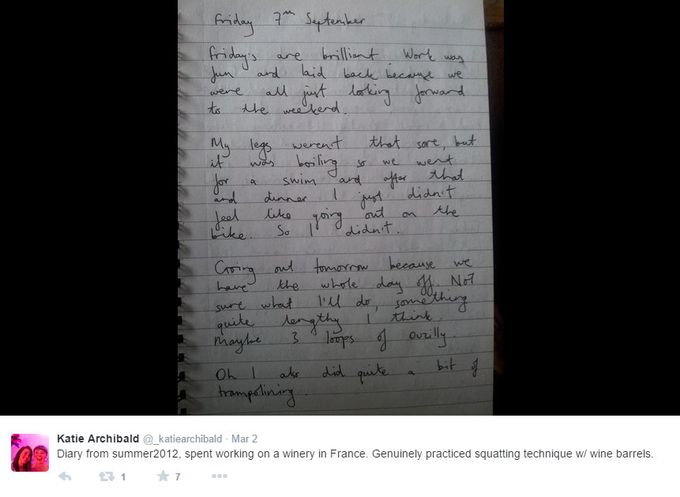 Friday 7th September
Friday's are brilliant. Work was
fun and laid back because we
were all just looking forward
to the weekend.
My legs weren't that sore, but
it was boiling so we went
for a swim and after that
and dinner I just didn't
feel like going out on the
bike. So I didn't.
Going out tomorrow because we
have the whole day off. Not
sure what I'll do, something
quite lengthy I think.
Maybe 3 loops of ouzilly.
Oh I also did quite a bit of
trampolining.
Katie Archibald @_katiearchibald · Mar 2
Diary from summer2012, spent working on a winery in France. Genuinely practiced squatting technique w/ wine barrels.
1 7